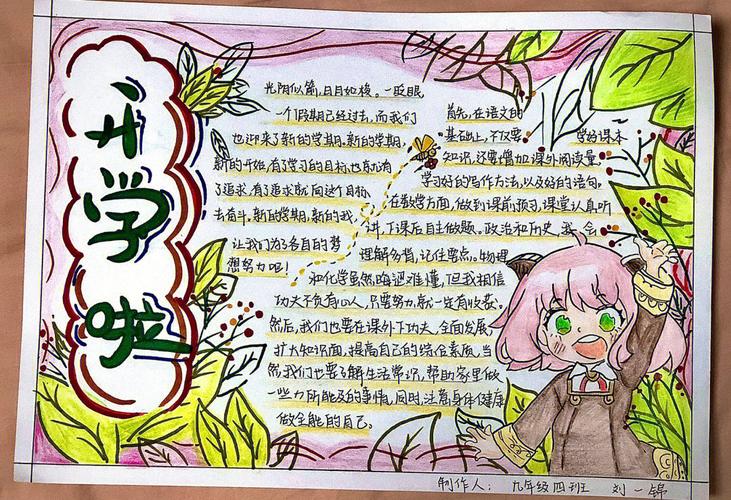 开学啦
光阴似箭,日月如梭。一眨眼
一个假期已经过去,而我们
也迎来了新的学期。新的学期,
新的开始,有了学习的目标,也就有
了追求,有了追求就向这个目标
去奋斗。新的学期,新的我,
让我们为了各自的梦
想努力吧!
首先,在语文的
基础上,不仅要学好课本
知识,还要增加课外阅读量,
学习好的写作方法,以及好的语句。
在数学方面,做到课前预习,课堂认真听
讲,下课后自主做题。政治和历史,我会
理解多背,记住要点。物理
和化学虽然晦涩难懂,但我相信
功夫不负有心人,只要努力,就一定有收获。
然后,我们也要在课外下功夫,全面发展,
扩大知识面,提高自己的综合素质,当
然我们也要了解生活常识,帮助家里做
一些力所能及的事情,同时,注意身体健康
做全能的自己。
制作人: 九年级四班 刘一锦